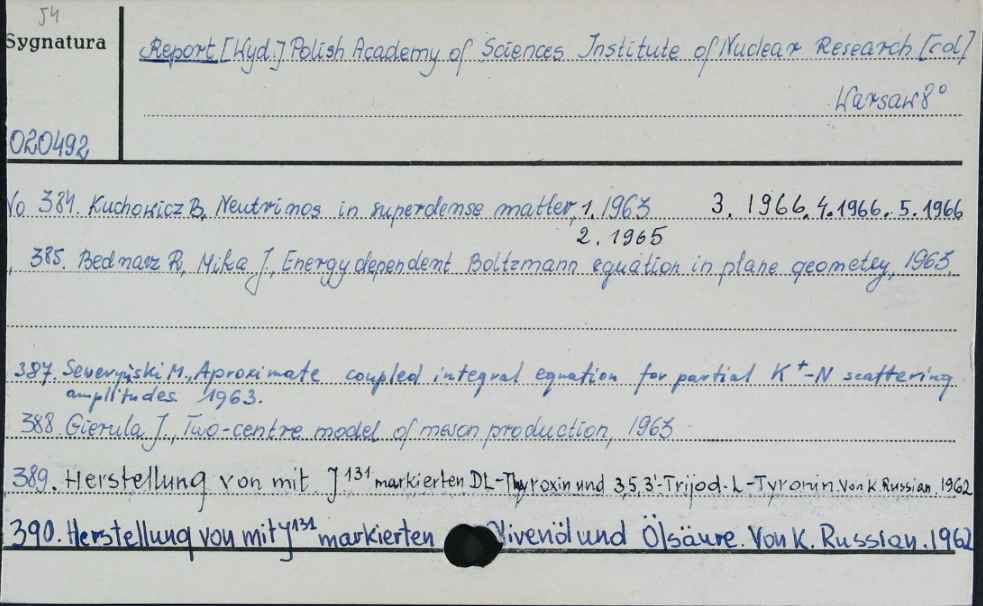 54
Sygnatura
Report [Wyd.] Polish Academy of Sciences Institute of Nuclear Research [col]
Warsaw 8°
020492
No 384. Kuchowicz B. Neutrinos in superdense matter, 1. 1963 3. 1966, 4. 1966. 5. 1966
2. 1965
385. Bednarz R, Mika J., Energy dependent Boltzmann equation in plane geometry, 1963.
387. Seweryński M., Aproximate coupled integral equation for partial K⁺-N scattering
amplitudes. 1963.
388. Gierula J., Two-centre model of meson production, 1963
389. Herstellung von mit J¹³¹ markierten DL-Thyroxin und 3,5,3'-Trijod-L-Tyronin. Von K. Russian. 1962
390. Herstellung von mit J¹³¹ markierten Olivenöl und Ölsäure. Von K. Russian. 1962